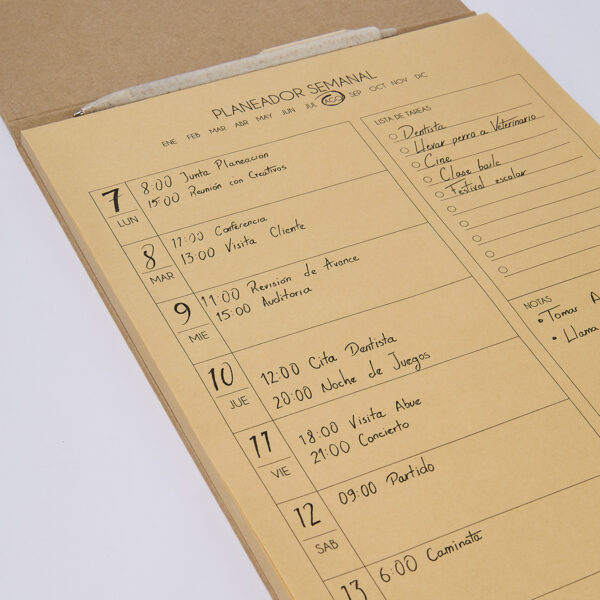 PLANEADOR SEMANAL
ENE FEB MAR ABR MAY JUN JUL AGO SEP OCT NOV DIC
7 LUN
8:00 Junta Planeación
15:00 Reunión con Creativos
8 MAR
11:00 Conferencia
13:00 Visita Cliente
9 MIE
11:00 Revisión de Avance
15:00 Auditoria
10 JUE
12:00 Cita Dentista
20:00 Noche de Juegos
11 VIE
18:00 Visita Abue
21:00 Concierto
12 SAB
09:00 Partido
13
6:00 Caminata
LISTA DE TAREAS
Dentista
Llevar perro a Veterinario
Cine
Clase baile
Festival escolar
NOTAS
• Tomar A
• Llama